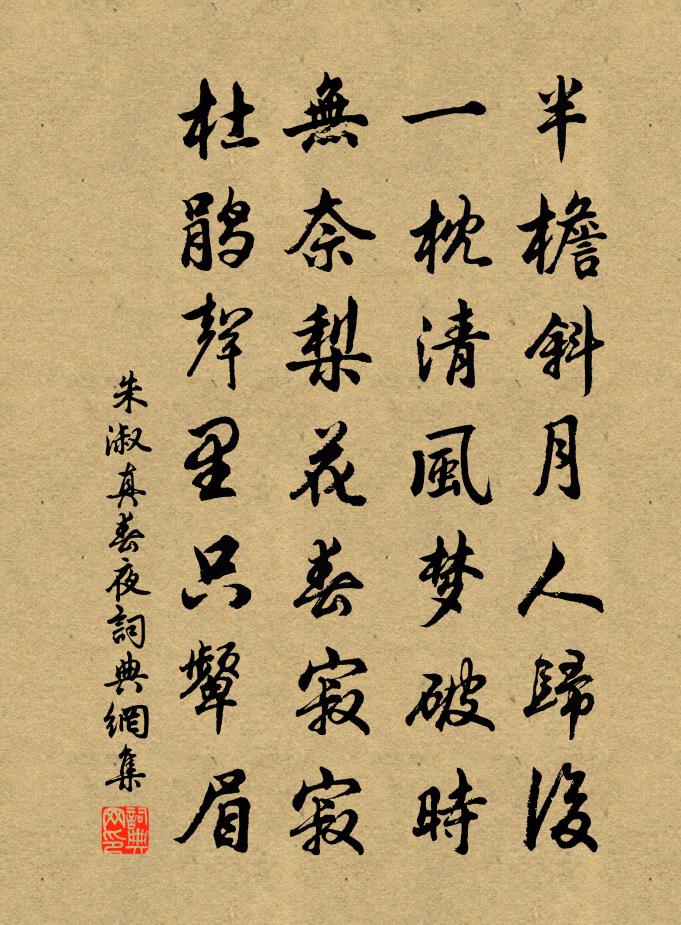 半檐斜月人歸後
一枕清風梦破時
無奈梨花春寂寂
杜鹃聲里只顰眉
朱淑真春夜詞典網集
詞典
网印